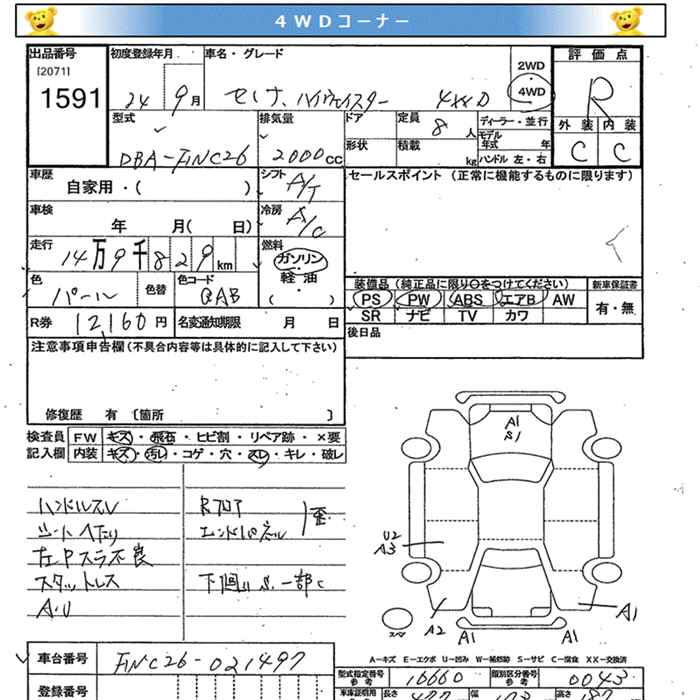 4WDコーナー
出品番号
[2071]
1591
初度登録年月
24 9月
車名・グレード
セレナ ハイウェイスター 4WD
2WD
4WD
評価点
R
外装 内装
C C
型式
DBA-FNC26
排気量
2000cc
ドア
形状
定員
8人
積載
kg
ディーラー・並行
モデル年式 年
ハンドル 左・右
車歴
自家用・( )
シフト
A/T
セールスポイント (正常に機能するものに限ります)
車検
年 月( 日)
冷房
A/C
走行
14万9千829km
燃料
ガソリン
・
軽油
( )
色
パール
色替
色コード
QAB
装備品 (純正品に限り○をつけてください)
PS PW ABS エアB AW
SR ナビ TV カワ
新車保証書
有・無
R券 12,160円
名変通知期限 月 日
後日品
注意事項申告欄(不具合内容等は具体的に記入して下さい)
修復歴 有 〔箇所 〕
検査員
記入欄
FW キズ・飛石・ヒビ割・リペア跡・×要
内装 キズ・汚レ・コゲ・穴・スレ・キレ・破レ
ハンドルスレ
シートヘたり
左Pスラ不良
スタットレス
A.U
Rフロア
エンドパネル
歪
下回りS.一部C
A1
S1
U2
A3
A2
A1
A1
A1
スペ
A-キズ E-エクボ U-凹み W-補修跡 S-サビ C-腐食 XX-交換済
車台番号 FNC26-021497
登録番号
型式指定番号
参考
16660
類別区分番号
参考
0043
長さ
幅
高さ